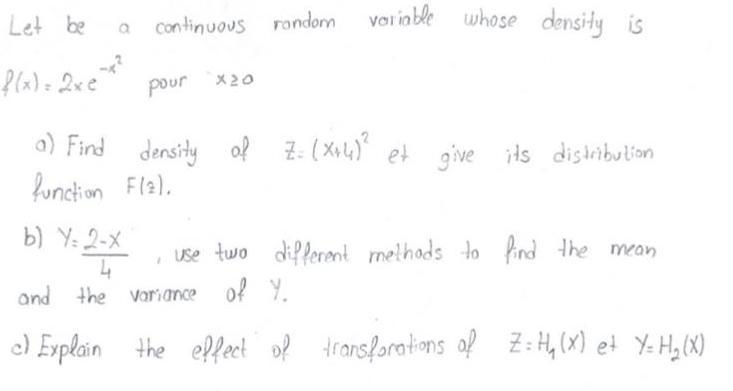 Let be a continuous random variable whose density is
f(x) = 2xe^{-x^2} pour x≥0
a) Find density of Z = (x+4)^2 et give its distribution
function F(z).
b) Y = \frac{2-X}{4}, use two different methods to find the mean
and the variance of Y.
c) Explain the effect of transforations of Z = H_1(X) et Y = H_2(X)